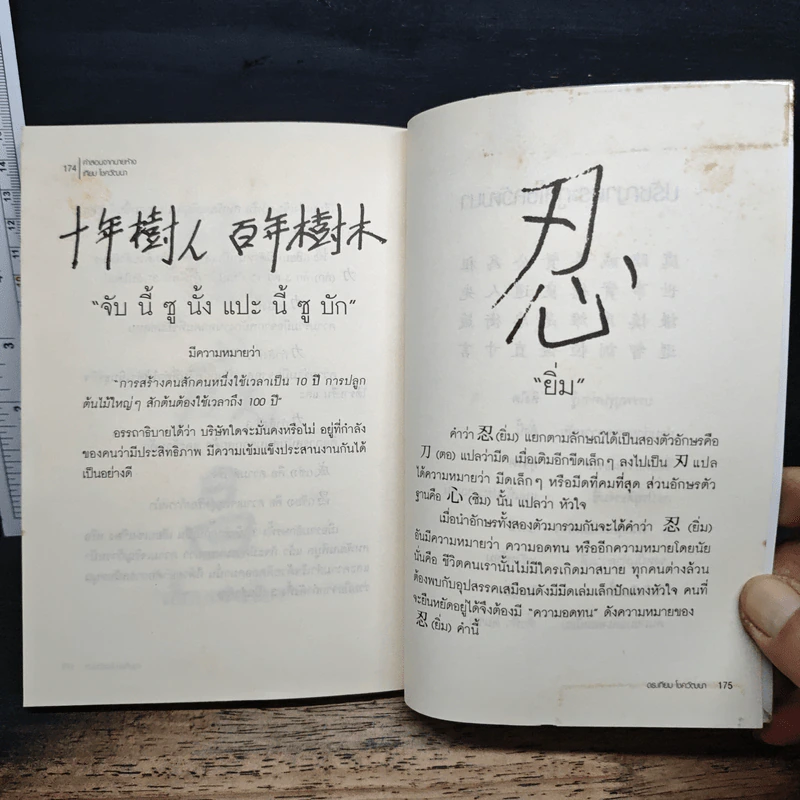 174
คำสอนจากนายห้าง
เทียม โชควัฒนา
十年樹人 百年樹木
“จับ นี้ ซู นั้ง แปะ นี้ ซู บัก”
มีความหมายว่า
“การสร้างคนสักคนหนึ่งใช้เวลาเป็น 10 ปี การปลูก
ต้นไม้ใหญ่ๆ สักต้นต้องใช้เวลาถึง 100 ปี”
อรรถาธิบายได้ว่า บริษัทใดจะมั่นคงหรือไม่ อยู่ที่กำลัง
ของคนว่ามีประสิทธิภาพ มีความเข้มแข็งประสานงานกันได้
เป็นอย่างดี
忍
“ยิ่ม”
คำว่า 忍 (ยิ่ม) แยกตามลักษณ์ได้เป็นสองตัวอักษรคือ
刀 (ตอ) แปลว่ามีด เมื่อเติมอีกขีดเล็กๆ ลงไปเป็น 刃 แปล
ได้ความหมายว่า มีดเล็กๆ หรือมีดที่คมที่สุด ส่วนอักษรตัว
ฐานคือ 心 (ซิม) นั้น แปลว่า หัวใจ
เมื่อนำอักษรทั้งสองตัวมารวมกันจะได้คำว่า 忍 (ยิ่ม)
อันมีความหมายว่า ความอดทน หรืออีกความหมายโดยนัย
นั่นคือ ชีวิตคนเรานั้นไม่มีใครเกิดมาสบาย ทุกคนต่างล้วน
ต้องพบกับอุปสรรคเสมือนดังมีมีดเล่มเล็กปักแทงหัวใจ คนที่
จะยืนหยัดอยู่ได้จึงต้องมี “ความอดทน” ดังความหมายของ
忍 (ยิ่ม) คำนี้
ดร.เทียม โชควัฒนา 175